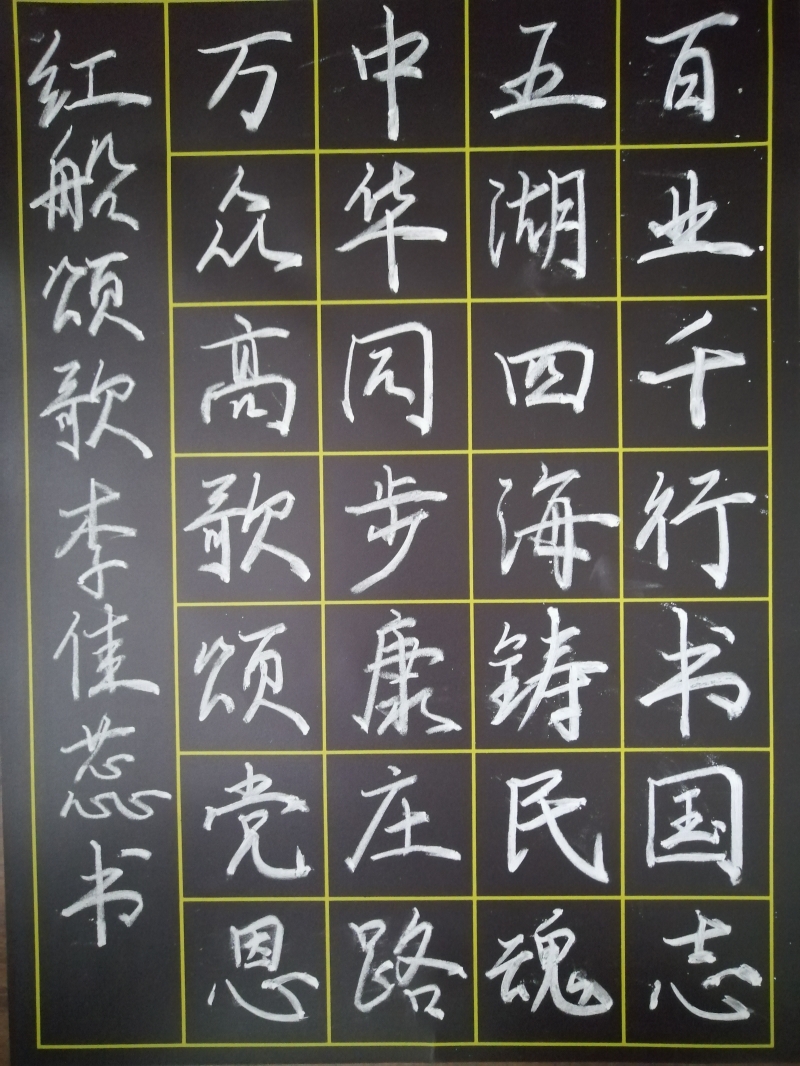 百业千行书国志
五湖四海铸民魂
中华同步康庄路
万众高歌颂党恩
红船颂歌李佳蕊书